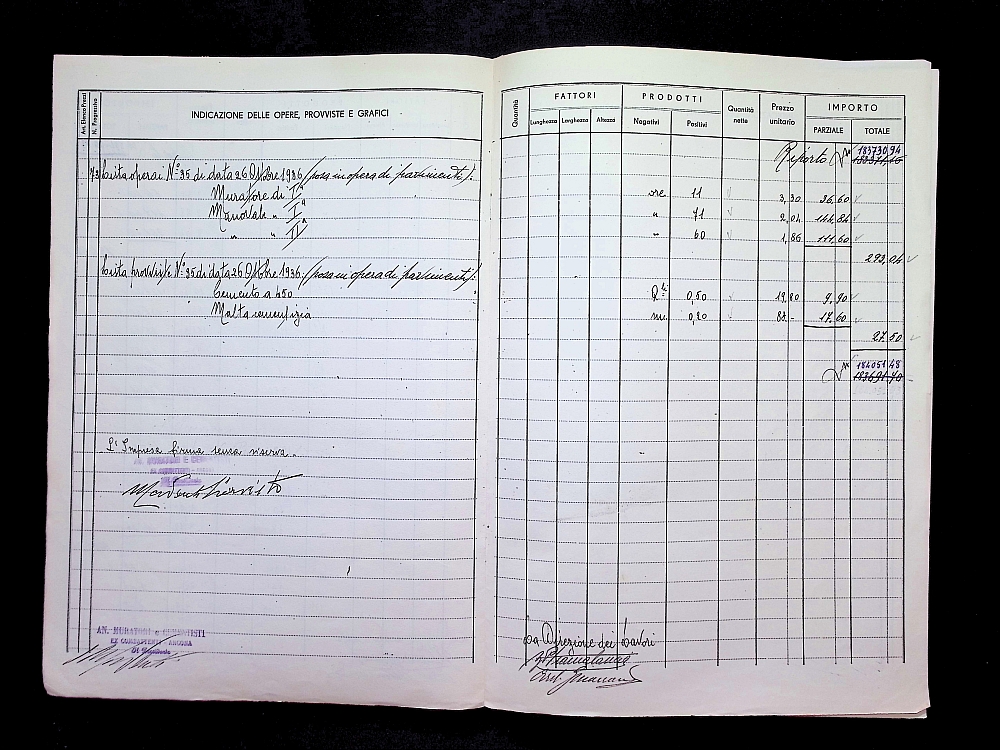 Art. Elenco Prezzi
N. Progressivo
INDICAZIONE DELLE OPERE, PROVVISTE E GRAFICI
73 Lista operai N° 35 di data 26 Ottobre 1936 (posa in opera di pavimenti):
Muratore di Iª
Manovale " Iª
" " IIª
Lista provviste N° 35 di data 26 Ottobre 1936 (posa in opera di pavimenti):
Cemento a 450
Malta cementizia
L'Impresa firma senza riserva.
AN. MURATORI e CEMENTISTI
EX COMBATTENTI ANCONA
Quantità
FATTORI
Lunghezza
Larghezza
Altezza
PRODOTTI
Negativi
Positivi
Quantità nette
Prezzo unitario
IMPORTO
PARZIALE
TOTALE
Riporto 183730,94
ore 11 3,30 36,60
" 71 2,04 144,84
" 60 1,86 111,60
293,04
Q.li 0,50 19,80 9,90
mc. 0,20 88.- 17,60
27,50
184051,48
183691,70
La Direzione dei Lavori